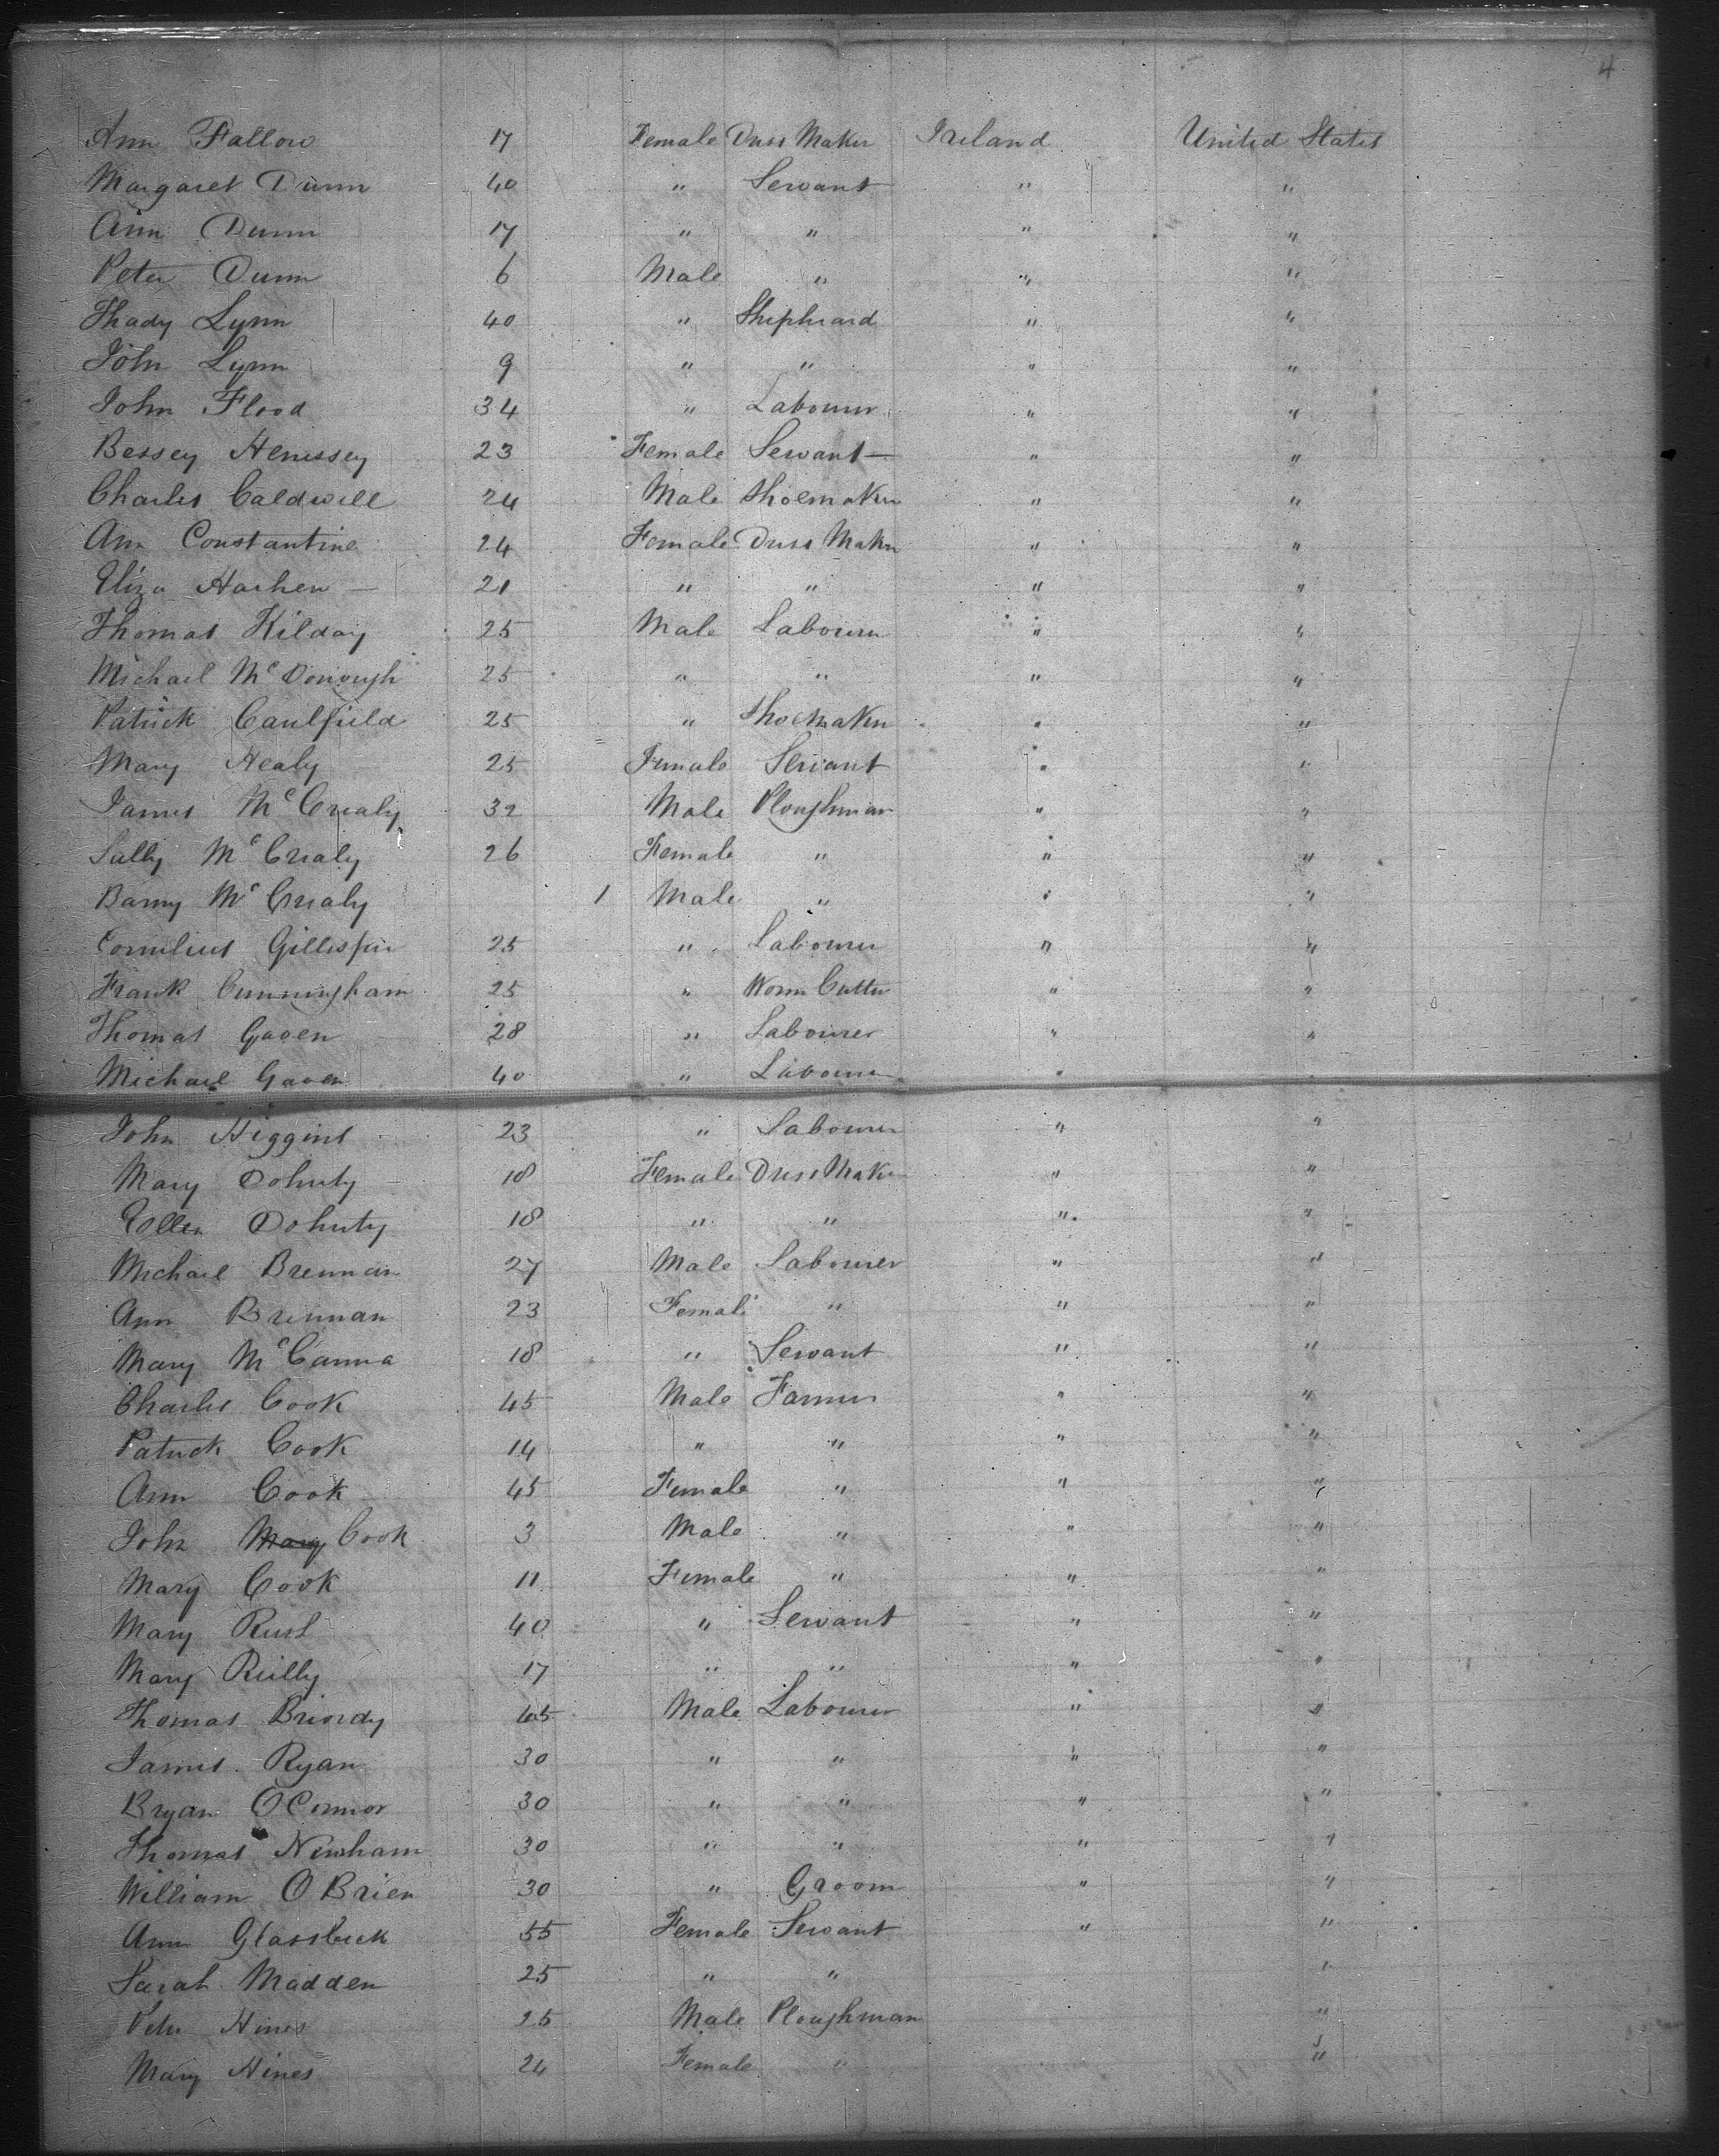 4
Ann Fallow 17 Female Dress Maker Ireland United States
Margaret Dunn 40 " Servant " "
Ann Dunn 17 " " " "
Peter Dunn 6 Male " " "
Thady Lynn 40 " Shepheard " "
John Lynn 9 " " " "
John Flood 34 " Labourer " "
Bessey Henessey 23 Female Servant " "
Charles Caldwell 24 Male Shoemaker " "
Ann Constantine 24 Female Dress Maker " "
Eliza Harhen 21 " " " "
Thomas Kilday 25 Male Labourer " "
Michael McDonough 25 " " " "
Patrick Caulfield 25 " Shoemaker " "
Mary Healy 25 Female Servant " "
James McCrealy 32 Male Ploughman " "
Sally McCrealy 26 Female " " "
Barny McCrealy 1 Male " " "
Cornelius Gillespie 25 " Labourer " "
Frank Cunningham 25 " Cutter " "
Thomas Gaven 28 " Labourer " "
Michael Gaven 40 " Labourer " "
John Higgins 23 " Labourer " "
Mary Doherty 18 Female Dress Maker " "
Ellen Doherty 18 " " " "
Michael Brennan 27 Male Labourer " "
Ann Brennan 23 Female " " "
Mary McCanna 18 " Servant " "
Charles Cook 45 Male Farmer " "
Patrick Cook 14 " " " "
Ann Cook 45 Female " " "
John Mary Cook 3 Male " " "
Mary Cook 11 Female " " "
Mary Rush 40 " Servant " "
Mary Reilly 17 " " " "
Thomas Briordy Male Labourer " "
James Ryan 30 " " " "
Bryan OConnor 30 " " " "
Thomas Newham 30 " " " "
William OBrien 30 " Groom " "
Ann Glassbeck 55 Female Servant " "
Sarah Madden 25 " " "
Peter Hines 25 Male Ploughman "
Mary Hines 24 Female " "